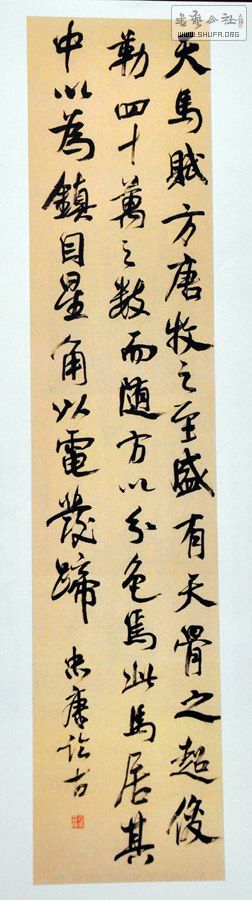 書藝公社
WWW.SHUFA.ORG
天馬賦方唐牧之至盛有天骨之超俊
勒四十萬之數而随方以分色焉此馬居其
中以為鎮目星角以電發蹄
忠康 古